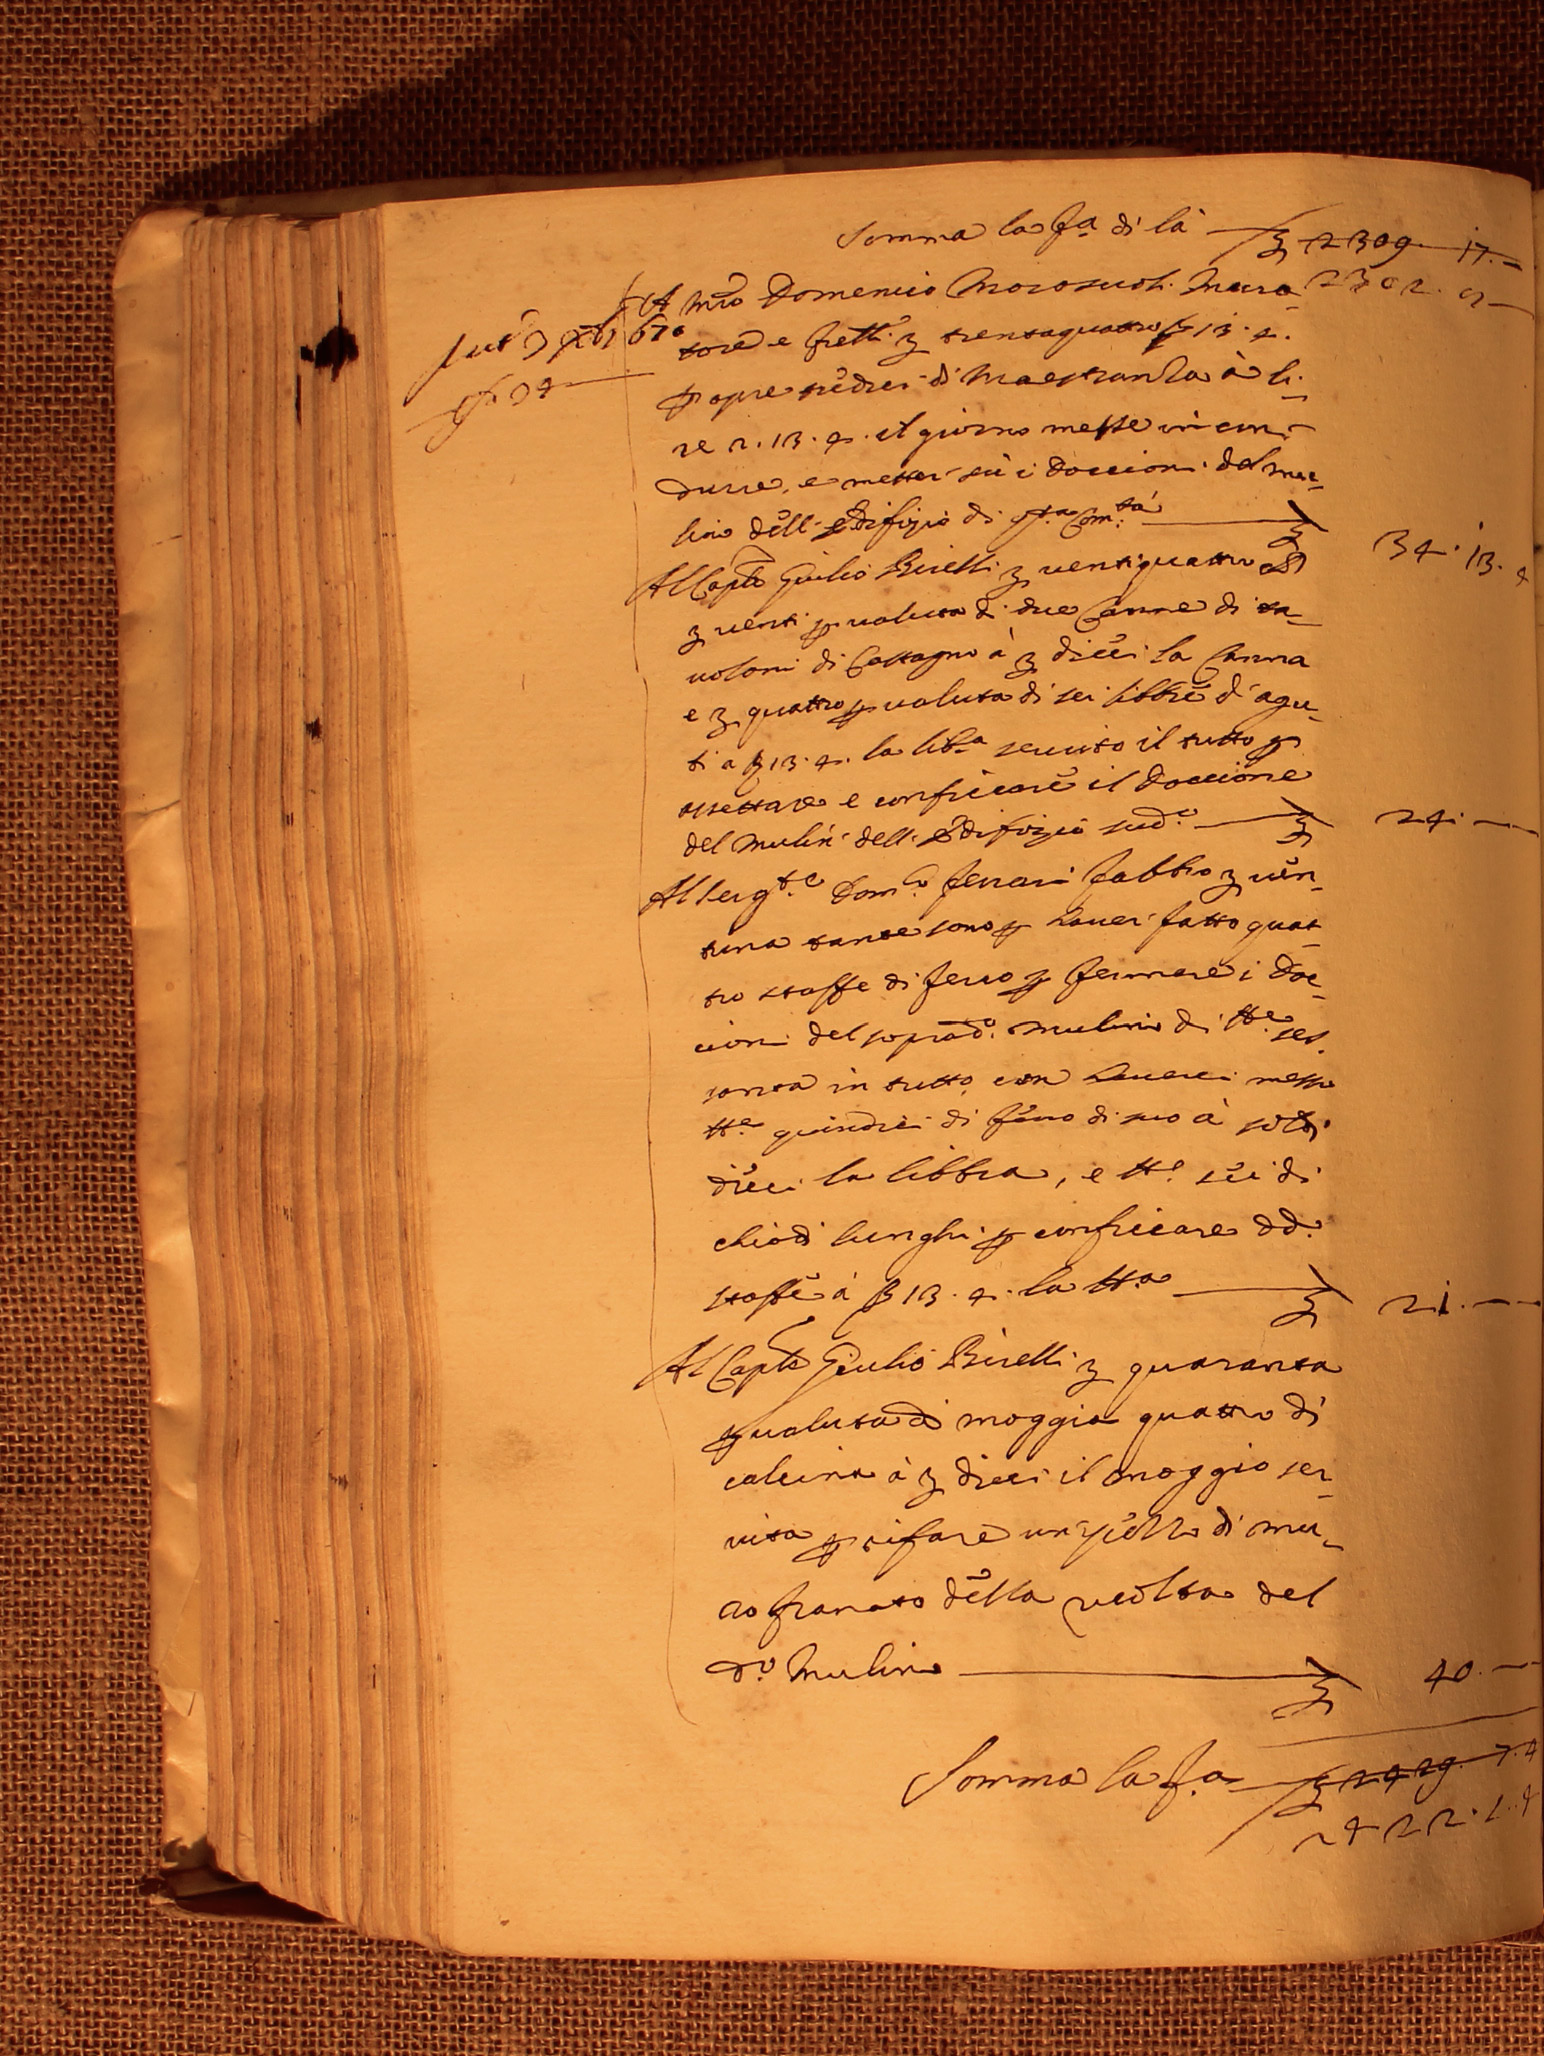 Somma la fa. di là ₤ 2309. 17. —
A mro Domenico Mura- 2302. 2 —
tore e frelli ₤ trentaquattro ß 13. 4.
p opre tredici di Maestranza à li-
re 2. 13. 4. il giorno messe in con-
durre, e metter sù i Doccioni del mu-
lino dell' Edifizio di qsta Comtà ₤ 34. 13. 4
Al Capno Giulio Birelli ₤ ventiquattro
₤ venti p valuta di due Canne di ta-
voloni di Castagno à ₤ dieci la Canna
e ₤ quattro p valuta di sei libbre d'agu-
ti a ß 13. 4. la liba servito il tutto p
assettare e conficcare il Doccione
del Mulin dell' Edifizio sudo ₤ 24. —
Al sergte Domco Ferrari Fabbro ₤ ven-
tuna tante sono p haver fatto quat-
tro staffe di ferro p fermare i Doc-
cioni del soprado Mulino di tte ses-
santa in tutto con haverci messo
tte quindici di ferro di suo à soldi
dieci la libbra, e tte sei di
chiodi lunghi p conficcare dd.
staffe à ß 13. 4. la tta ₤ 21. —
Al Capno Giulio Birelli ₤ quaranta
p valuta di moggia quattro di
calcina à ₤ dieci il moggio ser-
vita p rifare un pezzo di mu-
ro franato della volta del
do Mulino ₤ 40. —
Somma la fa. ₤ 2429. 7. 4
2422. 1. 4